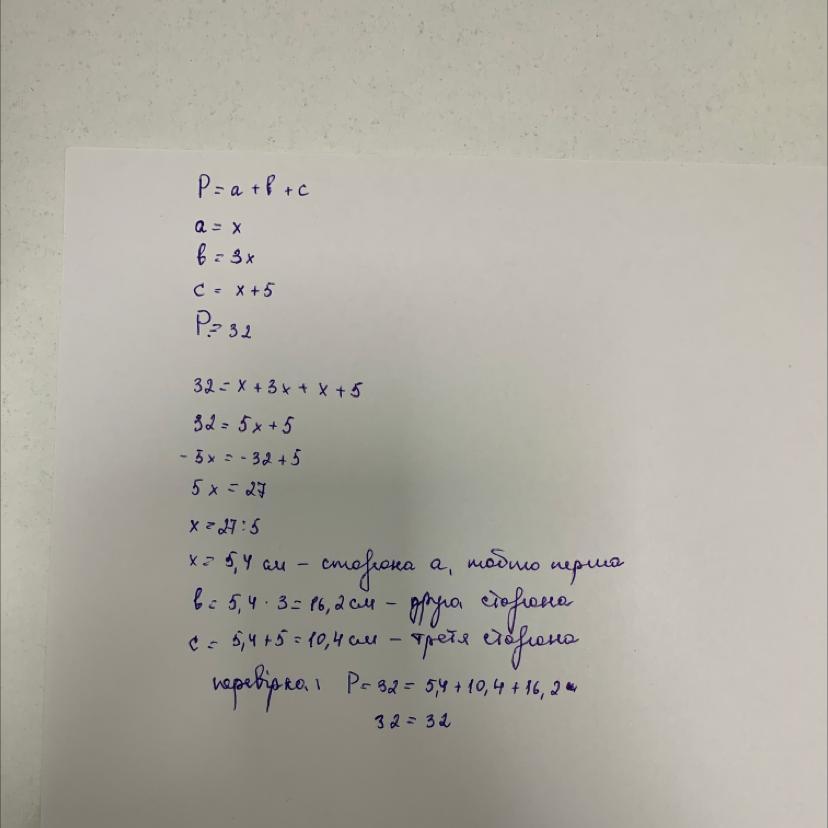 P = a + b + c
a = x
b = 3x
c = x + 5
P = 32
32 = x + 3x + x + 5
32 = 5x + 5
- 5x = - 32 + 5
5x = 27
x = 27 : 5
x = 5,4 см – сторона a, тобто перша
b = 5,4 · 3 = 16,2 см – друга сторона
c = 5,4 + 5 = 10,4 см – третя сторона
перевірка: P = 32 = 5,4 + 10,4 + 16,2
32 = 32